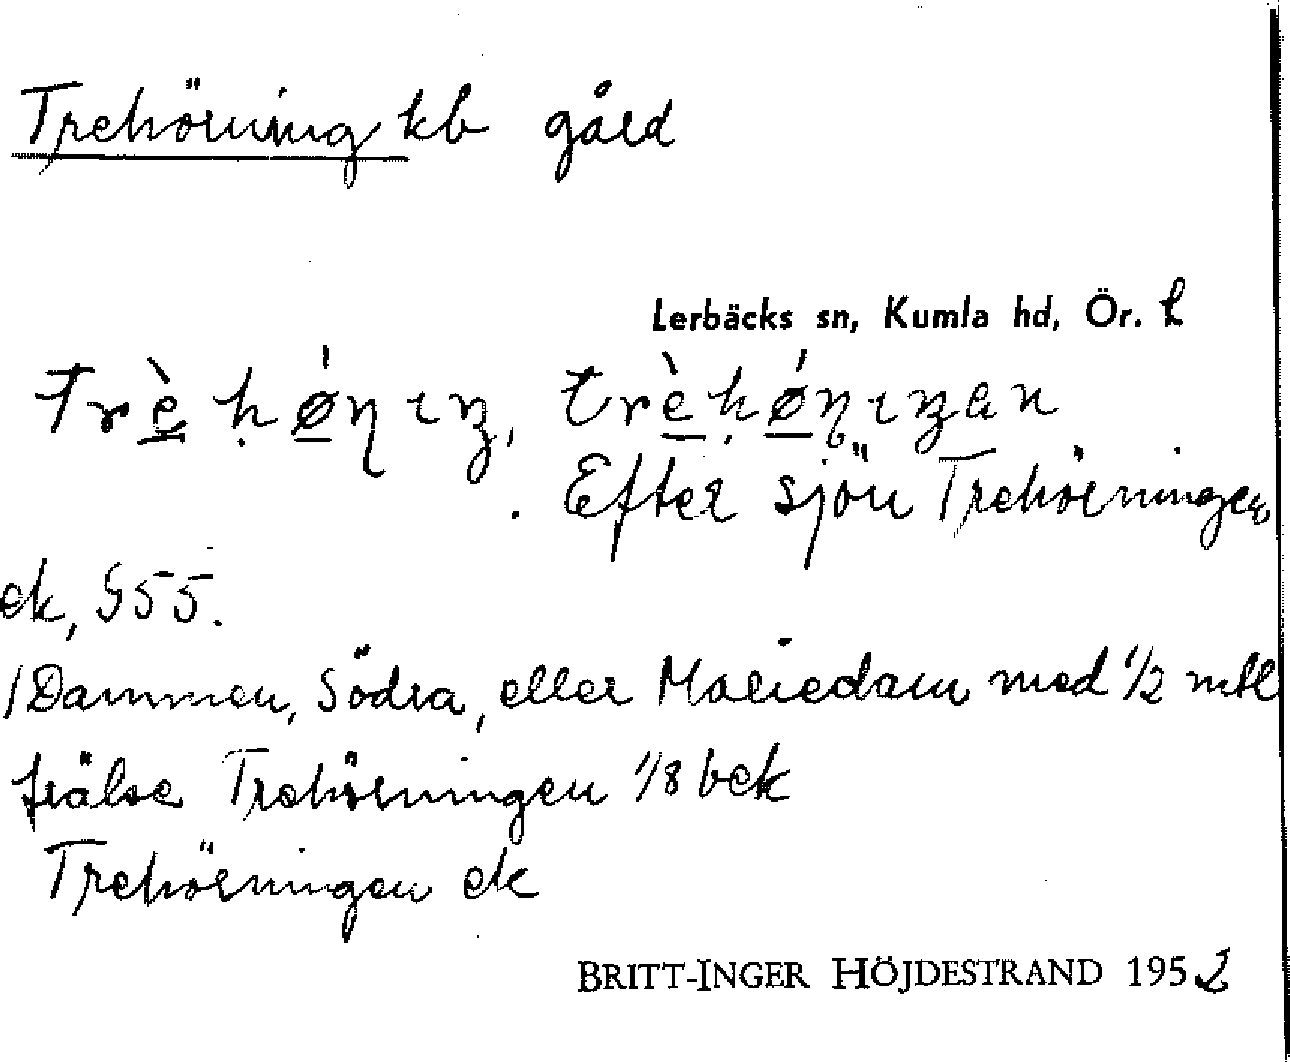 Trehörning kb gård
Lerbäcks sn, Kumla hd, Ör. l
Efter sjön Trehörningen
ek, S 55.
/Dammen, Södra, eller Mariedam med 1/2 mtl
frälse Trehörningen 1/8 bek
Trehörningen ek
BRITT-INGER HÖJDESTRAND 1952